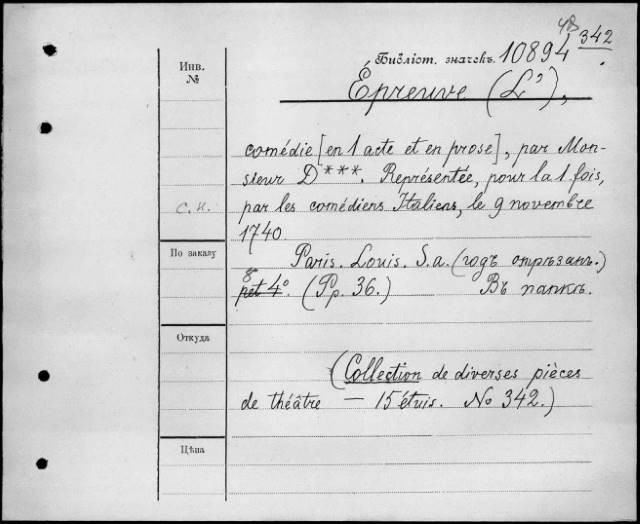 48 342
Инв. №
Библіот. значекъ 10894
Épreuve (L'),
comédie [en 1 acte et en prose], par Mon-
sieur D***. Représentée, pour la 1 fois,
с. и.
par les comédiens Italiens, le 9 novembre
1740.
По заказу
Paris. Louis. S.a. (годъ отрѣзанъ.)
8
pet 4°. (Pp. 36.) Въ папкѣ.
Откуда
(Collection de diverses pièces
de théâtre — 15 étuis. No 342.)
Цѣна